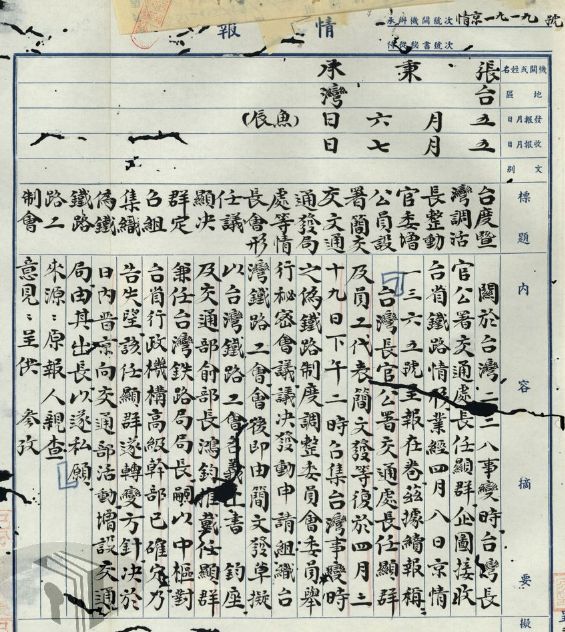 情報
承辦機關號次 情京一九一九號
號次
機關或姓名 張秉承
地區 台灣
發報日月 五月六日(魚辰)
收報日月 五月七日
文別
標題
台灣長官公署交通處長任顯群召集偽鐵路制
度調整委員簡文發等會議決定組織鐵路工會
暨活動增設交通局情形
內容摘要
關於台灣二二八事變時台灣長
官公署交通處長任顯群企圖接收
台省鐵路情形業經四月八日京情
一三六五號呈報在卷茲據續報稱
「台灣長官公署交通處長任顯群
及員工代表簡文發等復於四月二
十九日下午二時召集台灣事變時
之偽鐵路制度調整委員會委員舉
行秘密會議議決發動申請組織台
灣鐵路工會會後即由簡文發草擬
以台灣鐵路工會名義上書 鈞座
及交通部俞部長鴻鈞推戴任顯群
兼任台灣鉄路局局長嗣以中樞對
台省行政機構高級幹部已確定乃
告失望該任顯群遂轉變方針決於
日內晉京向交通部活動增設交通
局由其出長以遂私願」
來源：原報人親查
意見：呈供 參攷
擬